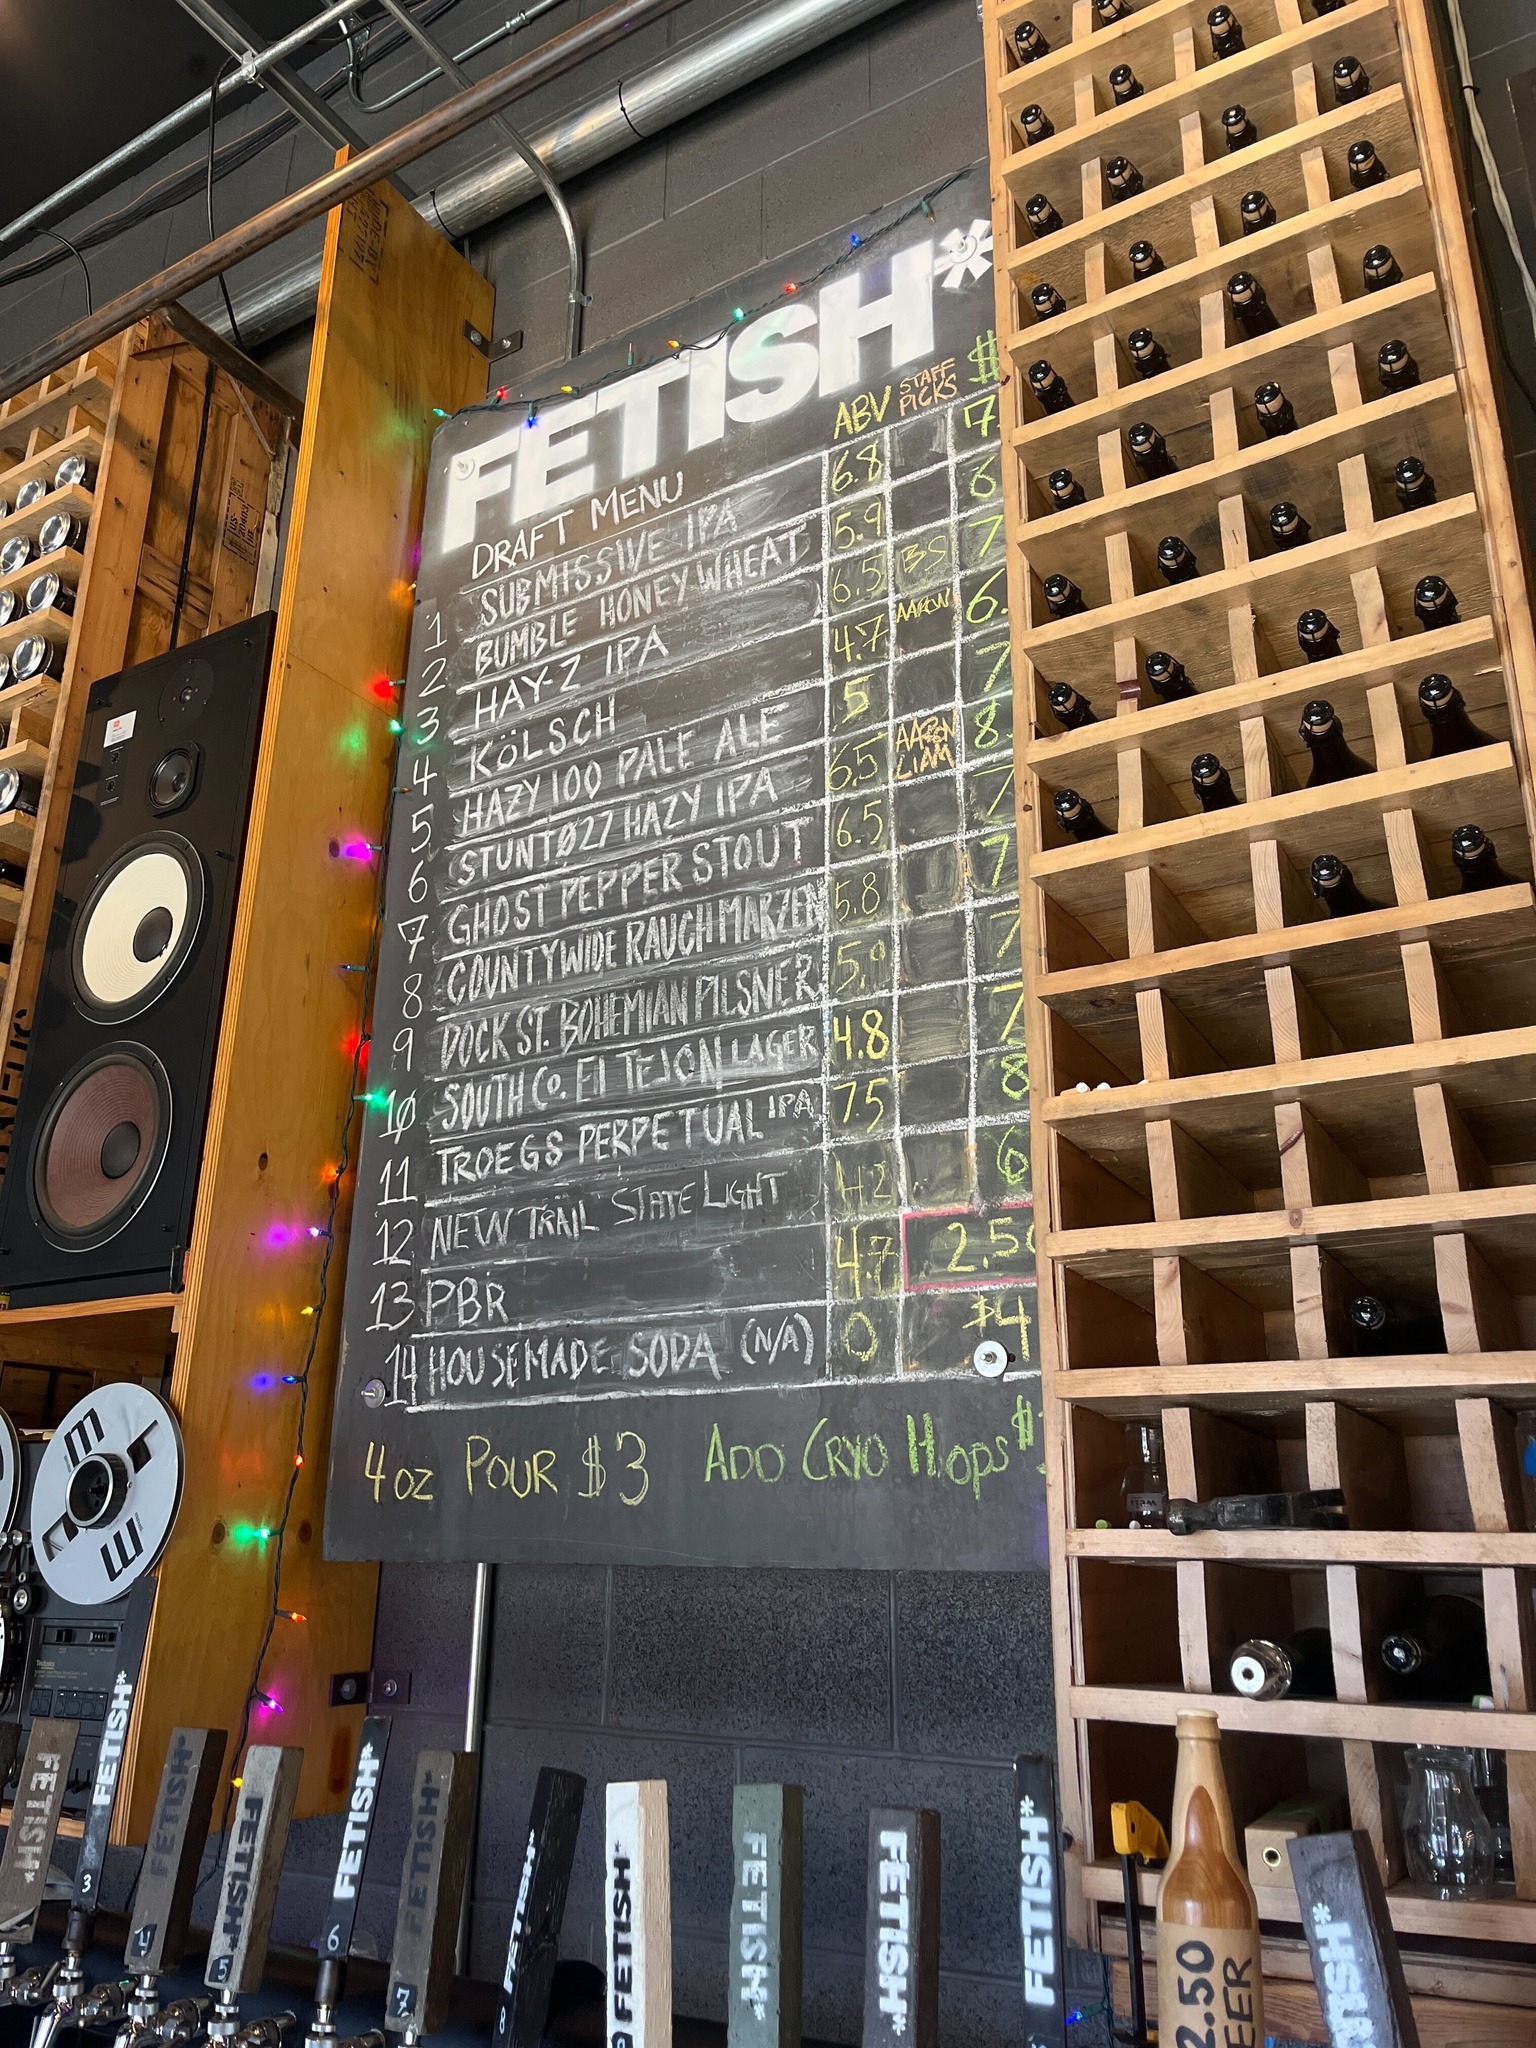 FETISH*
DRAFT MENU ABV STAFF PICKS $
1 SUBMISSIVE IPA 6.8 7
2 BUMBLE HONEY WHEAT 5.9 6
3 HAY-Z IPA 6.5 BS 7
4 KÖLSCH 4.7 6.
5 HAZY 100 PALE ALE 5 7
6 STUNTØ27 HAZY IPA 6.5 AARON LIAM 8.
7 GHOST PEPPER STOUT 6.5 7
8 COUNTYWIDE RAUCHMARZEN 5.8 7
9 DOCK ST. BOHEMIAN PILSNER 5.0 7
10 SOUTH CO. El TEJON LAGER 4.8 7
11 TROEGS PERPETUAL IPA 7.5 8
12 NEW TRAIL STATE LIGHT 4.2 6
13 PBR 4.7 2.50
14 HOUSEMADE SODA (N/A) 0 $4
4 oz POUR $3 ADD CRYO HOPS $
FETISH*
FETISH*
3
FETISH*
4
FETISH*
5
FETISH*
6
FETISH*
7
FETISH*
8
FETISH*
FETISH*
FETISH*
FETISH*
2.50
FETISH*
Technics